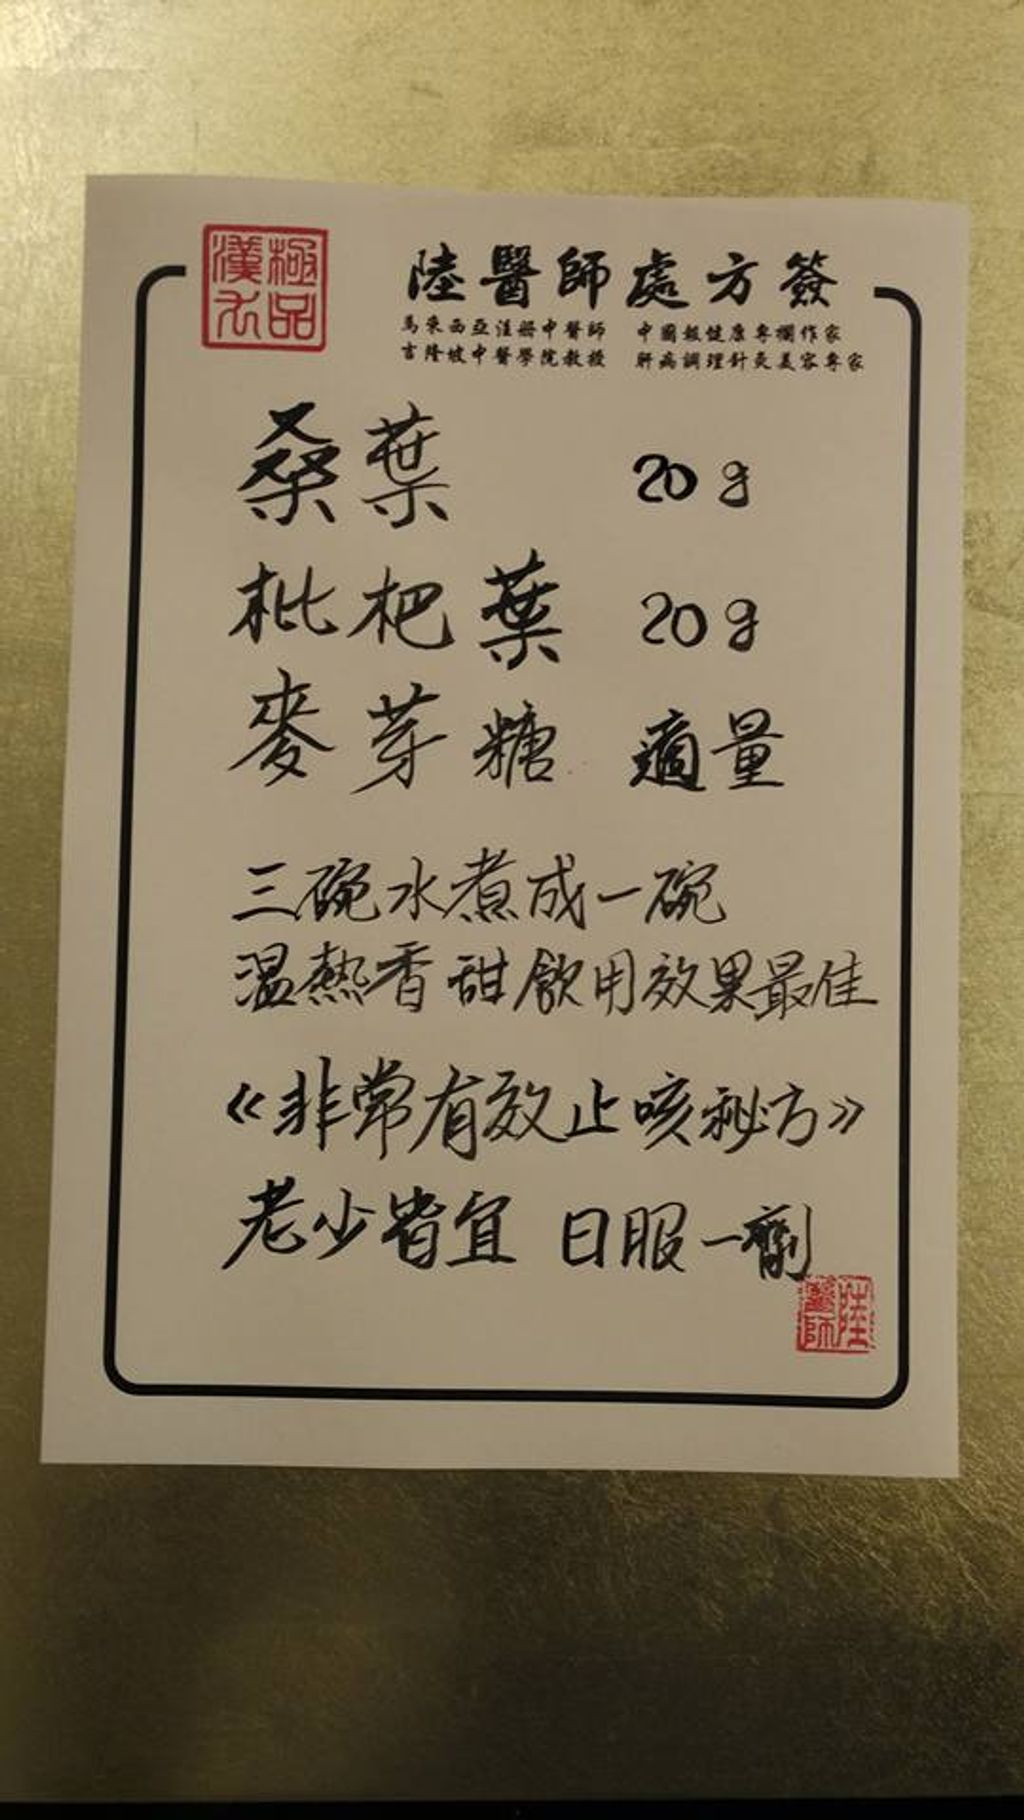 極品
漢方
陸醫師處方簽
馬來西亞注冊中醫師 中國報健康專欄作家
吉隆坡中醫學院教授 肝病調理針灸美容專家
桑葉 20g
枇杷葉 20g
麥芽糖 適量
三碗水煮成一碗
溫熱香甜飲用效果最佳
《非常有效止咳秘方》
老少皆宜 日服一劑
陸醫師